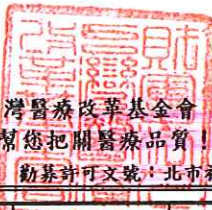 灣醫療改革基金會
幫您把關醫療品質！
勸募許可文號：北市